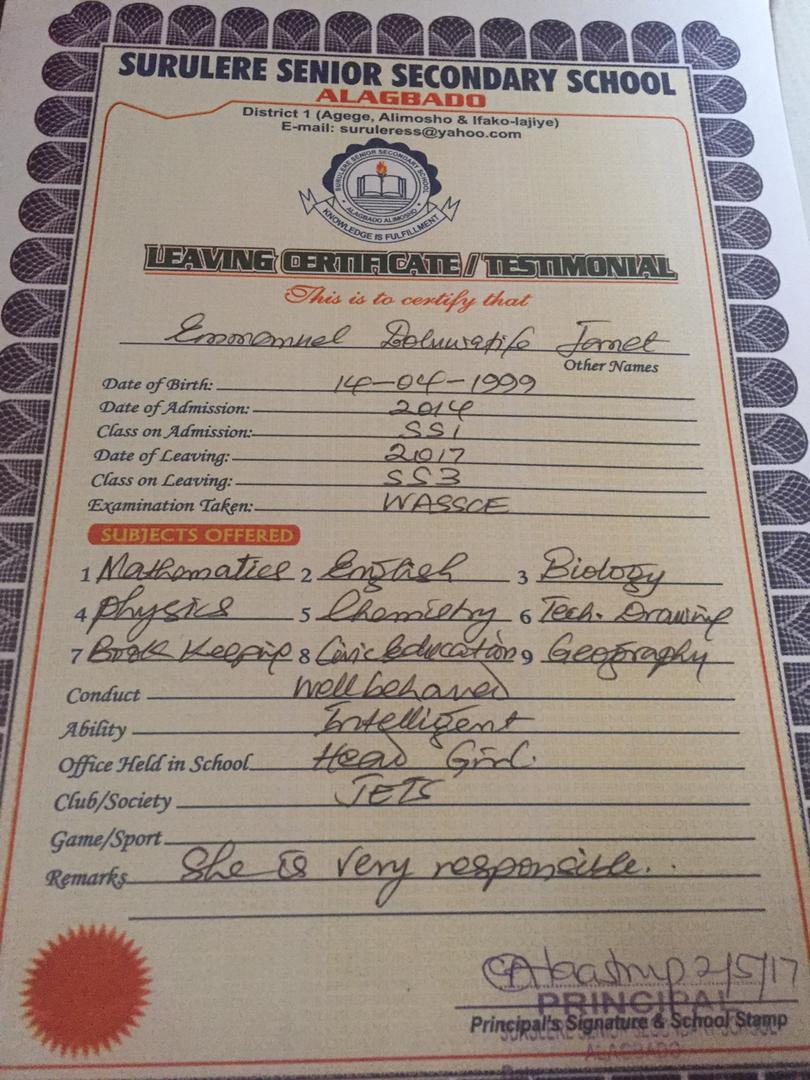 SURULERE SENIOR SECONDARY SCHOOL
ALAGBADO
District 1 (Agege, Alimosho & Ifako-Iajiye)
E-mail: suruleress@yahoo.com
SURULERE SENIOR SECONDARY SCHOOL
ALAGBADO ALIMOSHO
KNOWLEDGE IS FULFILLMENT
LEAVING CERTIFICATE / TESTIMONIAL
This is to certify that
Emmanuel Janet
Other Names
Date of Birth: 14-04-1999
Date of Admission: 2014
Class on Admission: SS1
Date of Leaving: 2017
Class on Leaving: SS3
Examination Taken: WASSCE
SUBJECTS OFFERED
1 Mathematics 2 English 3 Biology
4 Physics 5 Chemistry 6 Tech. Drawing
7 Book Keeping 8 Civic Education 9 Geography
Conduct Well behaved
Ability Intelligent
Office Held in School Head Girl.
Club/Society JETS
Game/Sport
Remarks She is very responsible..
2/5/17
PRINCIPAL
Principal's Signature & School Stamp
ALAGBADO